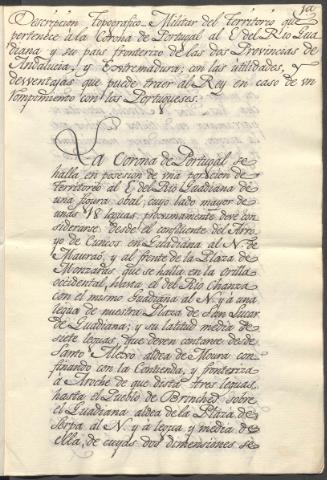 Descripcion Topografico-Militar del Territorio que
pertenece á la Corona de Portugal al E. del Rio Gua
diana y su pais fronterizo de las dos Provincias de
Andalucia, y Extremadura, con las utilidades, y
desventajas que puede traer al Rey en caso de un
rompimiento con los Portugueses.
La Corona de Portugal se
halla en posesion de una porcion de
Territorio al E. del Rio Guadiana de
una figura obal, cuyo lado mayor de
unas 18 leguas proximamente deve con
siderarse desde el confluente del Arro
yo de Cuncos en Guadiana al N. de
Mauraō, y al frente de la Plaza de
Monzaras, que se halla en la orilla
occidental, hasta el del Rio Chanza
con el mismo Guadiana al N. y a una
legua de nuestra Plaza de San Lucar
de Guadiana; y su latitud media de
siete leguas, que deven contarse desde
Santo Alexo aldea de Moura con
finando con la Contienda, y fronteriza
á Aroche de que dista tres leguas,
hasta el Pueblo de Brinches, sobre
el Guadiana aldea de la Plaza de
Serpa al N. y a legua y media de
ella, de cuyas dos dimensiones se